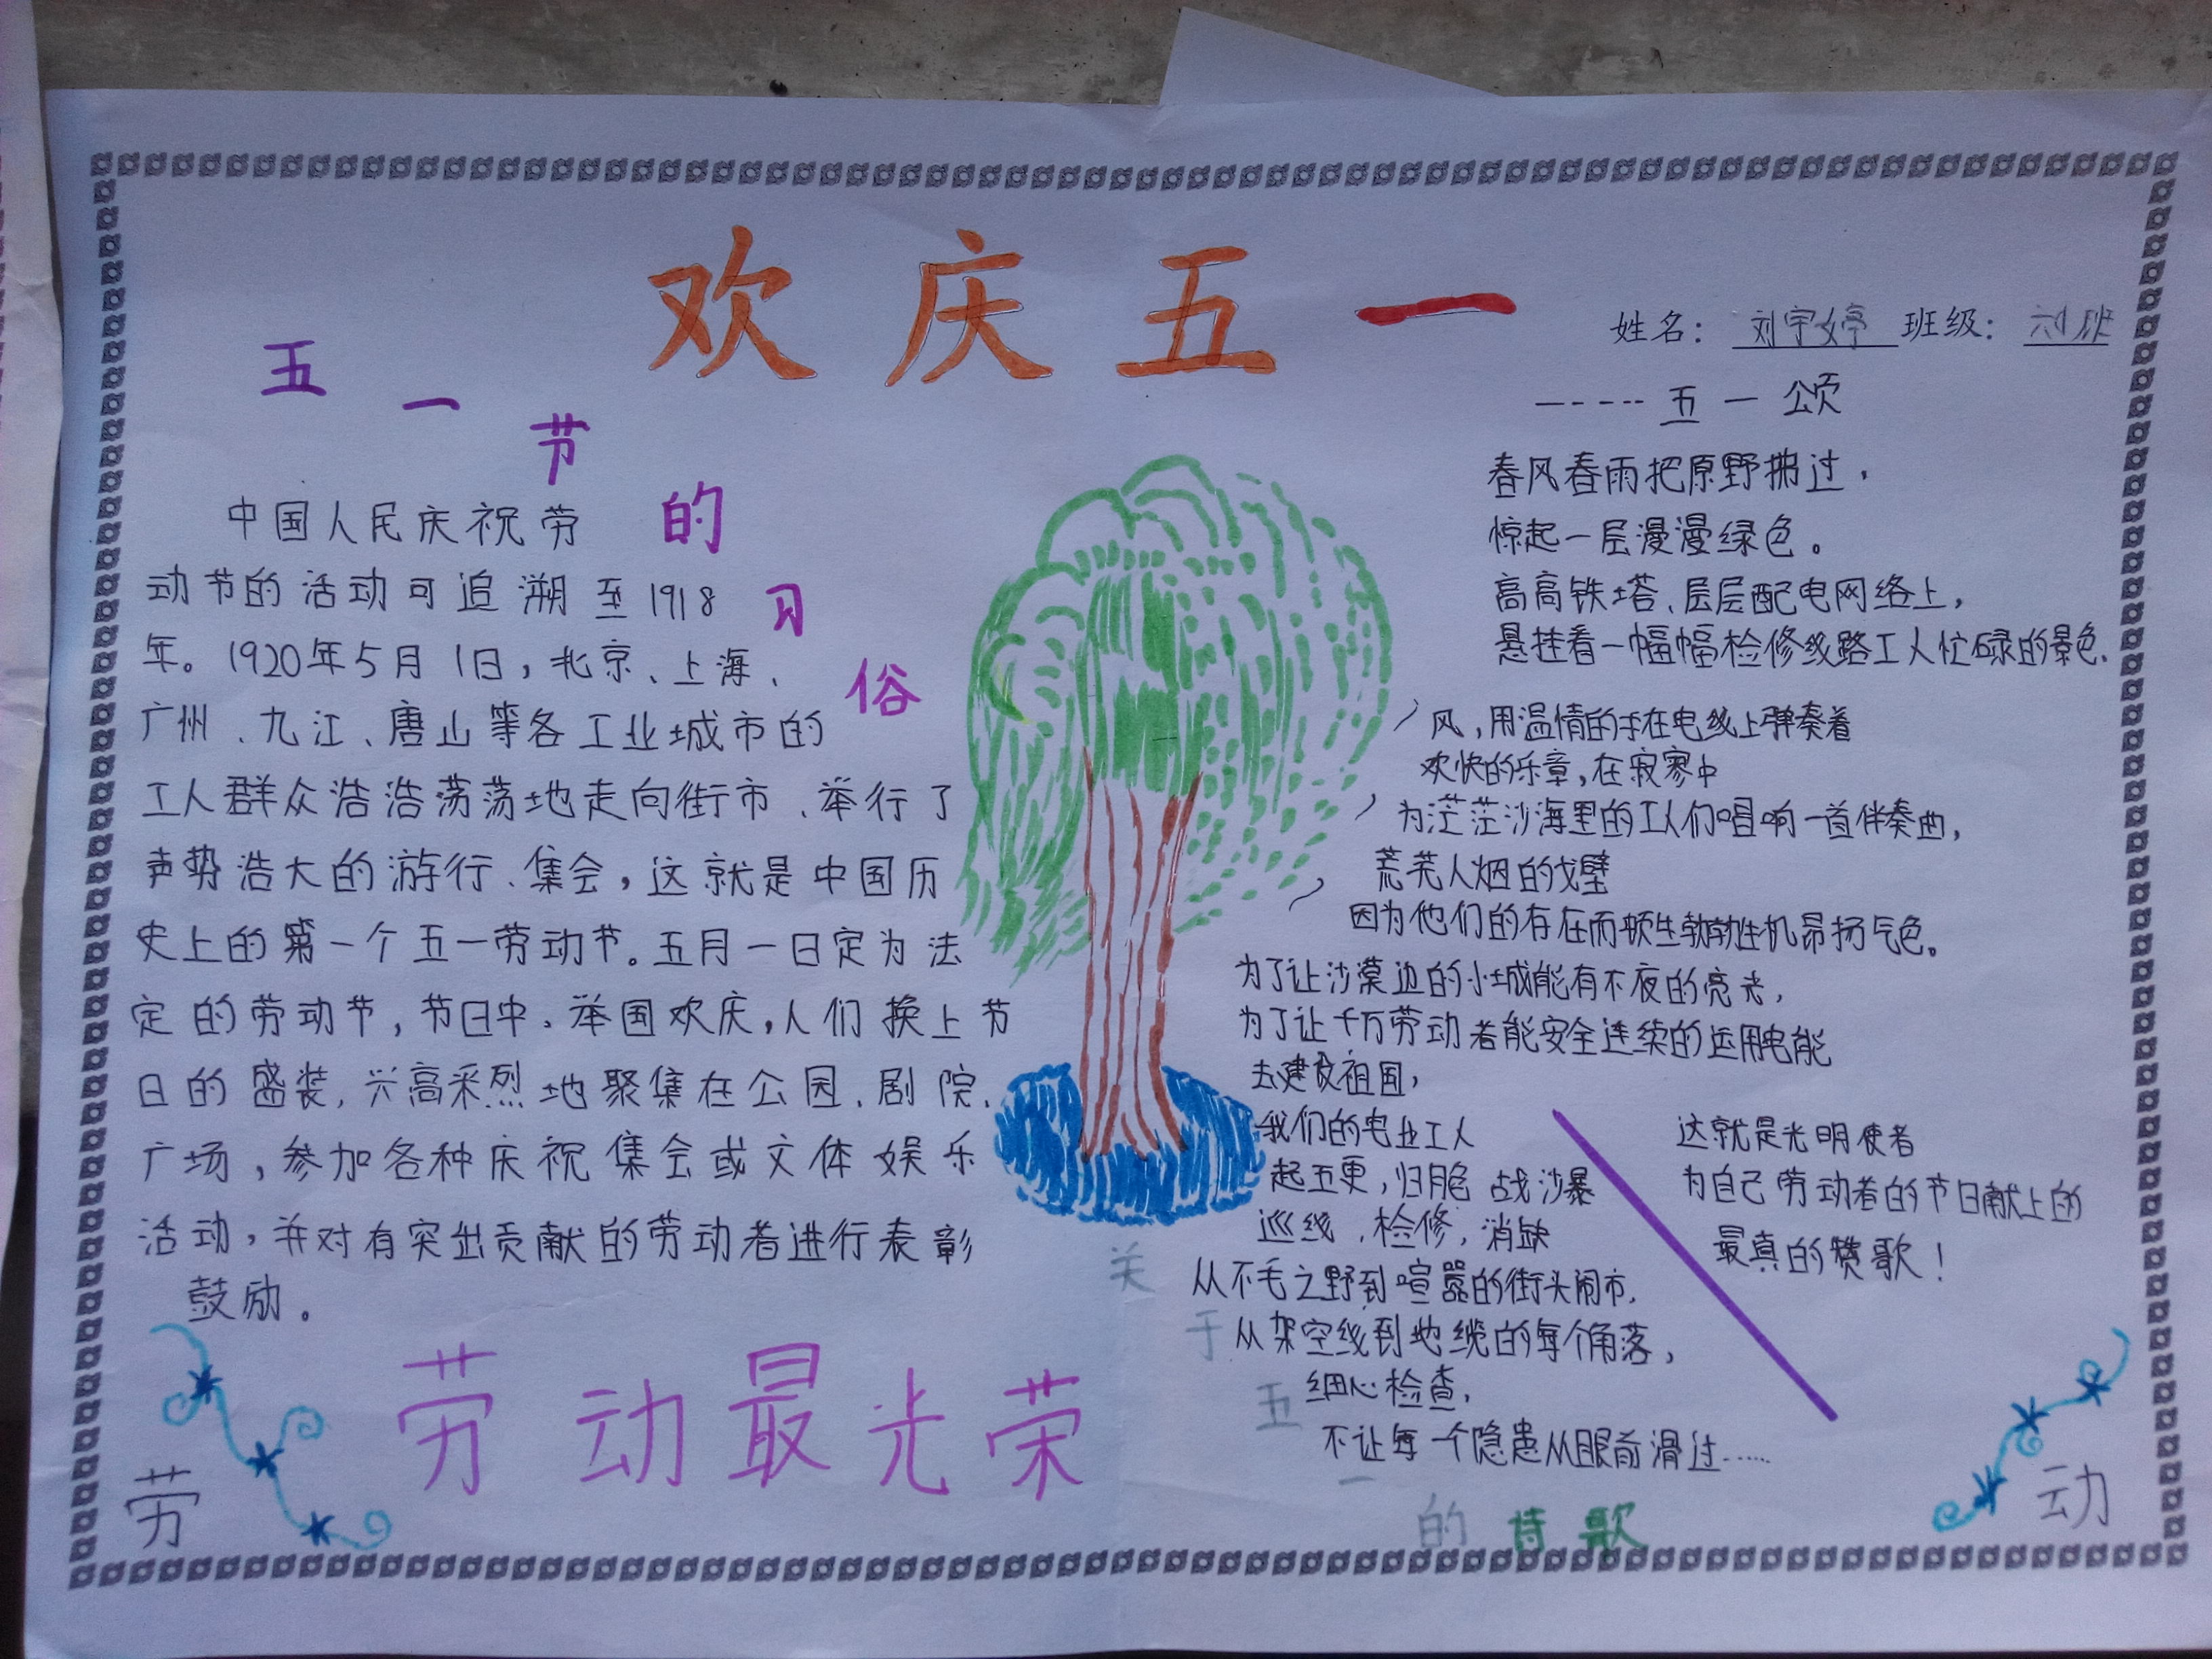 欢庆五一
姓名：刘宇婷 班级：六1班
五一节的习俗
中国人民庆祝劳
动节的活动可追溯至1918
年。1920年5月1日，北京、上海、
广州、九江、唐山等各工业城市的
工人群众浩浩荡荡地走向街市、举行了
声势浩大的游行、集会，这就是中国历
史上的第一个五一劳动节。五月一日定为法
定的劳动节，节日中，举国欢庆，人们换上节
日的盛装，兴高采烈地聚集在公园、剧院、
广场，参加各种庆祝集会或文体娱乐
活动，并对有突出贡献的劳动者进行表彰
鼓励。
劳动最光荣
劳
-----五一颂
春风春雨把原野拂过，
惊起一层漫漫绿色。
高高铁塔、层层配电网络上，
悬挂着一幅幅检修线路工人忙碌的景色、
风，用温情的手在电线上弹奏着
欢快的乐章，在寂寥中
为茫茫沙海里的工人们唱响一首伴奏曲，
荒芜人烟的戈壁
因为他们的存在而顿生勃勃生机昂扬气色。
为了让沙漠边的小城能有不夜的亮光，
为了让千万劳动者能安全连续的运用电能
去建设祖国，
我们的电业工人
起五更，归月色 战沙暴
巡线、检修，消缺
从不毛之野到喧嚣的街头闹市，
从架空线到地缆的每个角落，
细心检查，
不让每一个隐患从眼前滑过......
这就是光明使者
为自己劳动者的节日献上的
最真的赞歌！
关于五一的诗歌
动